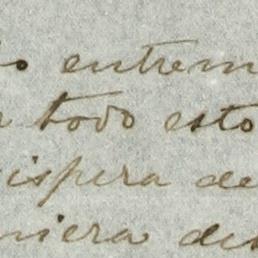 entrem
todo esto
ispera de
niera des